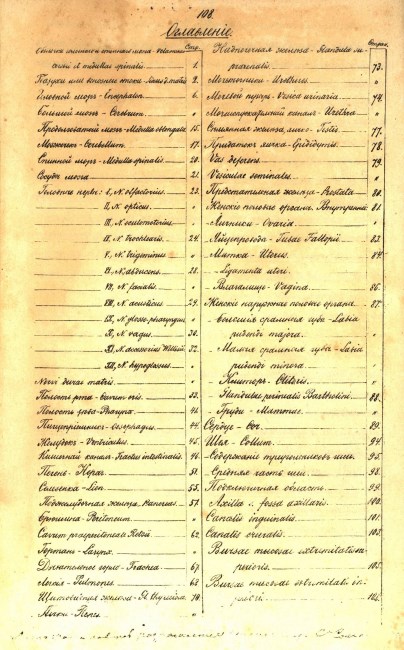 108.
Оглавленіе.
Стран.
Оболочки спиннаго и головнаго мозга - Velamenta
cerebri et medullae spinalis 1.
Пазухи или венозные токи - Sinus d. matris 2.
Головной мозгъ - Encephalon 6.
Большой мозгъ - Cerebrum "
Продолговатый мозгъ - Medulla oblongata 15.
Мозжечокъ - Cerebellum 17.
Спинной мозгъ - Medulla spinalis 20.
Сосуды мозга 21.
Головные нервы: I, N. olfactorius 23.
II, N. opticus "
III, N. oculomotorius "
IV, N. trochlearis 24.
V, N. trigeminus "
VI, N. abducens 28.
VII, N. facialis "
VIII, N. acusticus 29.
IX, N. glosso-pharyngeus "
X, N. vagus 30.
XI, N. accessorius Willisii 32.
XII, N. hypoglossus "
Nervi durae matris "
Полость рта - Cavum oris 33.
Полость зѣва - Pharynx 41.
Пищепріемникъ - Oesophagus 44.
Желудокъ - Ventriculus 45.
Кишечный каналъ - Tractus intestinalis 46.
Печень - Hepar 51.
Селезенка - Lien 55.
Поджелудочная железа - Pancreas 57.
Брюшина - Peritoneum "
Cavum praeperitoneale Retzii 62.
Гортань - Larynx "
Дыхательное горло - Trachea 67.
Легкія - Pulmones 68.
Щитовидная железа - Gl. thyreoidea 70.
Почки - Renes "
Стран.
Надпочечная железа - Glandula su-
prarenalis 73.
Мочеточники - Uretheres "
Мочевой пузырь - Vesica urinaria 74.
Мочеиспускательный каналъ - Urethra "
Сѣменная железа, яичко - Testis 77.
Придатокъ яичка - Epididymis 78.
Vas deferens 79.
Vesiculae seminales "
Предстательная железа - Prostata 80.
Женскіе половые органы. Внутренніе 81.
Яичники - Ovaria "
Яйцепроводы - Tubae Fallopii 83.
Матка - Uterus 84.
Ligamenta uteri "
Влагалище - Vagina 86.
Женскіе наружные половые органы 87.
большія срамныя губы - Labia
pudendi majora "
Малыя срамныя губы - Labia
pudendi minora "
Клиторъ - Clitoris "
Glandulae Bartholini 88.
Груди - Mammae "
Сердце - Cor 89.
Шея - Collum 94.
Содержаніе треугольниковъ шеи 95.
Средняя часть шеи 98.
Подключичная область 99.
Axilla s. fossa axillaris 100.
Canalis inguinalis 101.
Canalis cruralis 103.
Bursae mucosae extremitatis su-
perioris 105.
Bursae mucosae extremitatis in-
ferioris 106.